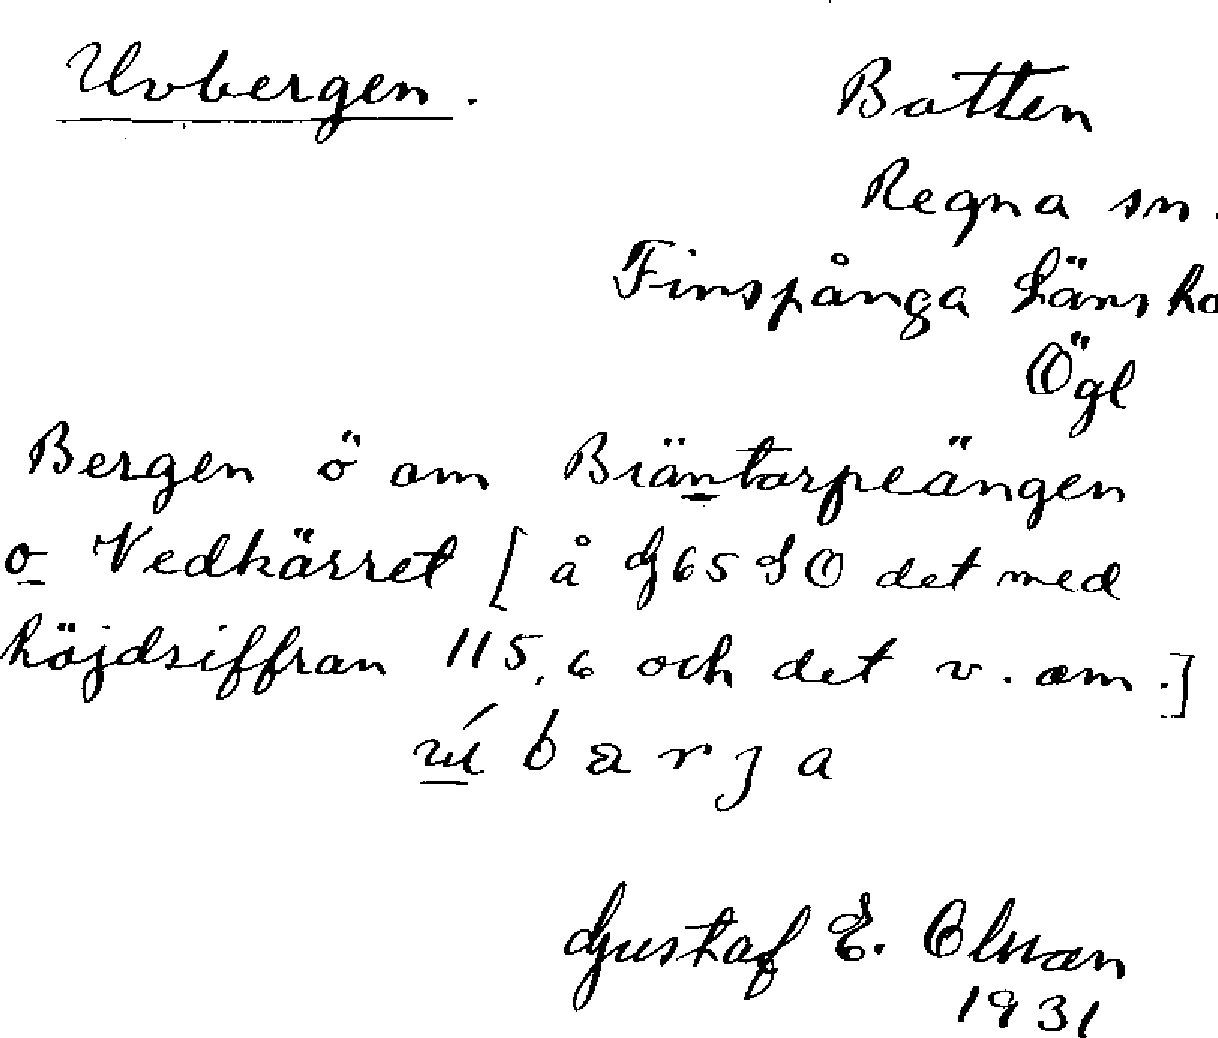 Uvbergen.
Botten
Regna sn.
Finspånga Läns ho
Ögl
Bergen ö om Bräntorpeängen
o Vedkärret [ å G 65 SO det med
höjdsiffran 115,6 och det v. om.]
b a r j a
Gustaf E. Olsson
1931